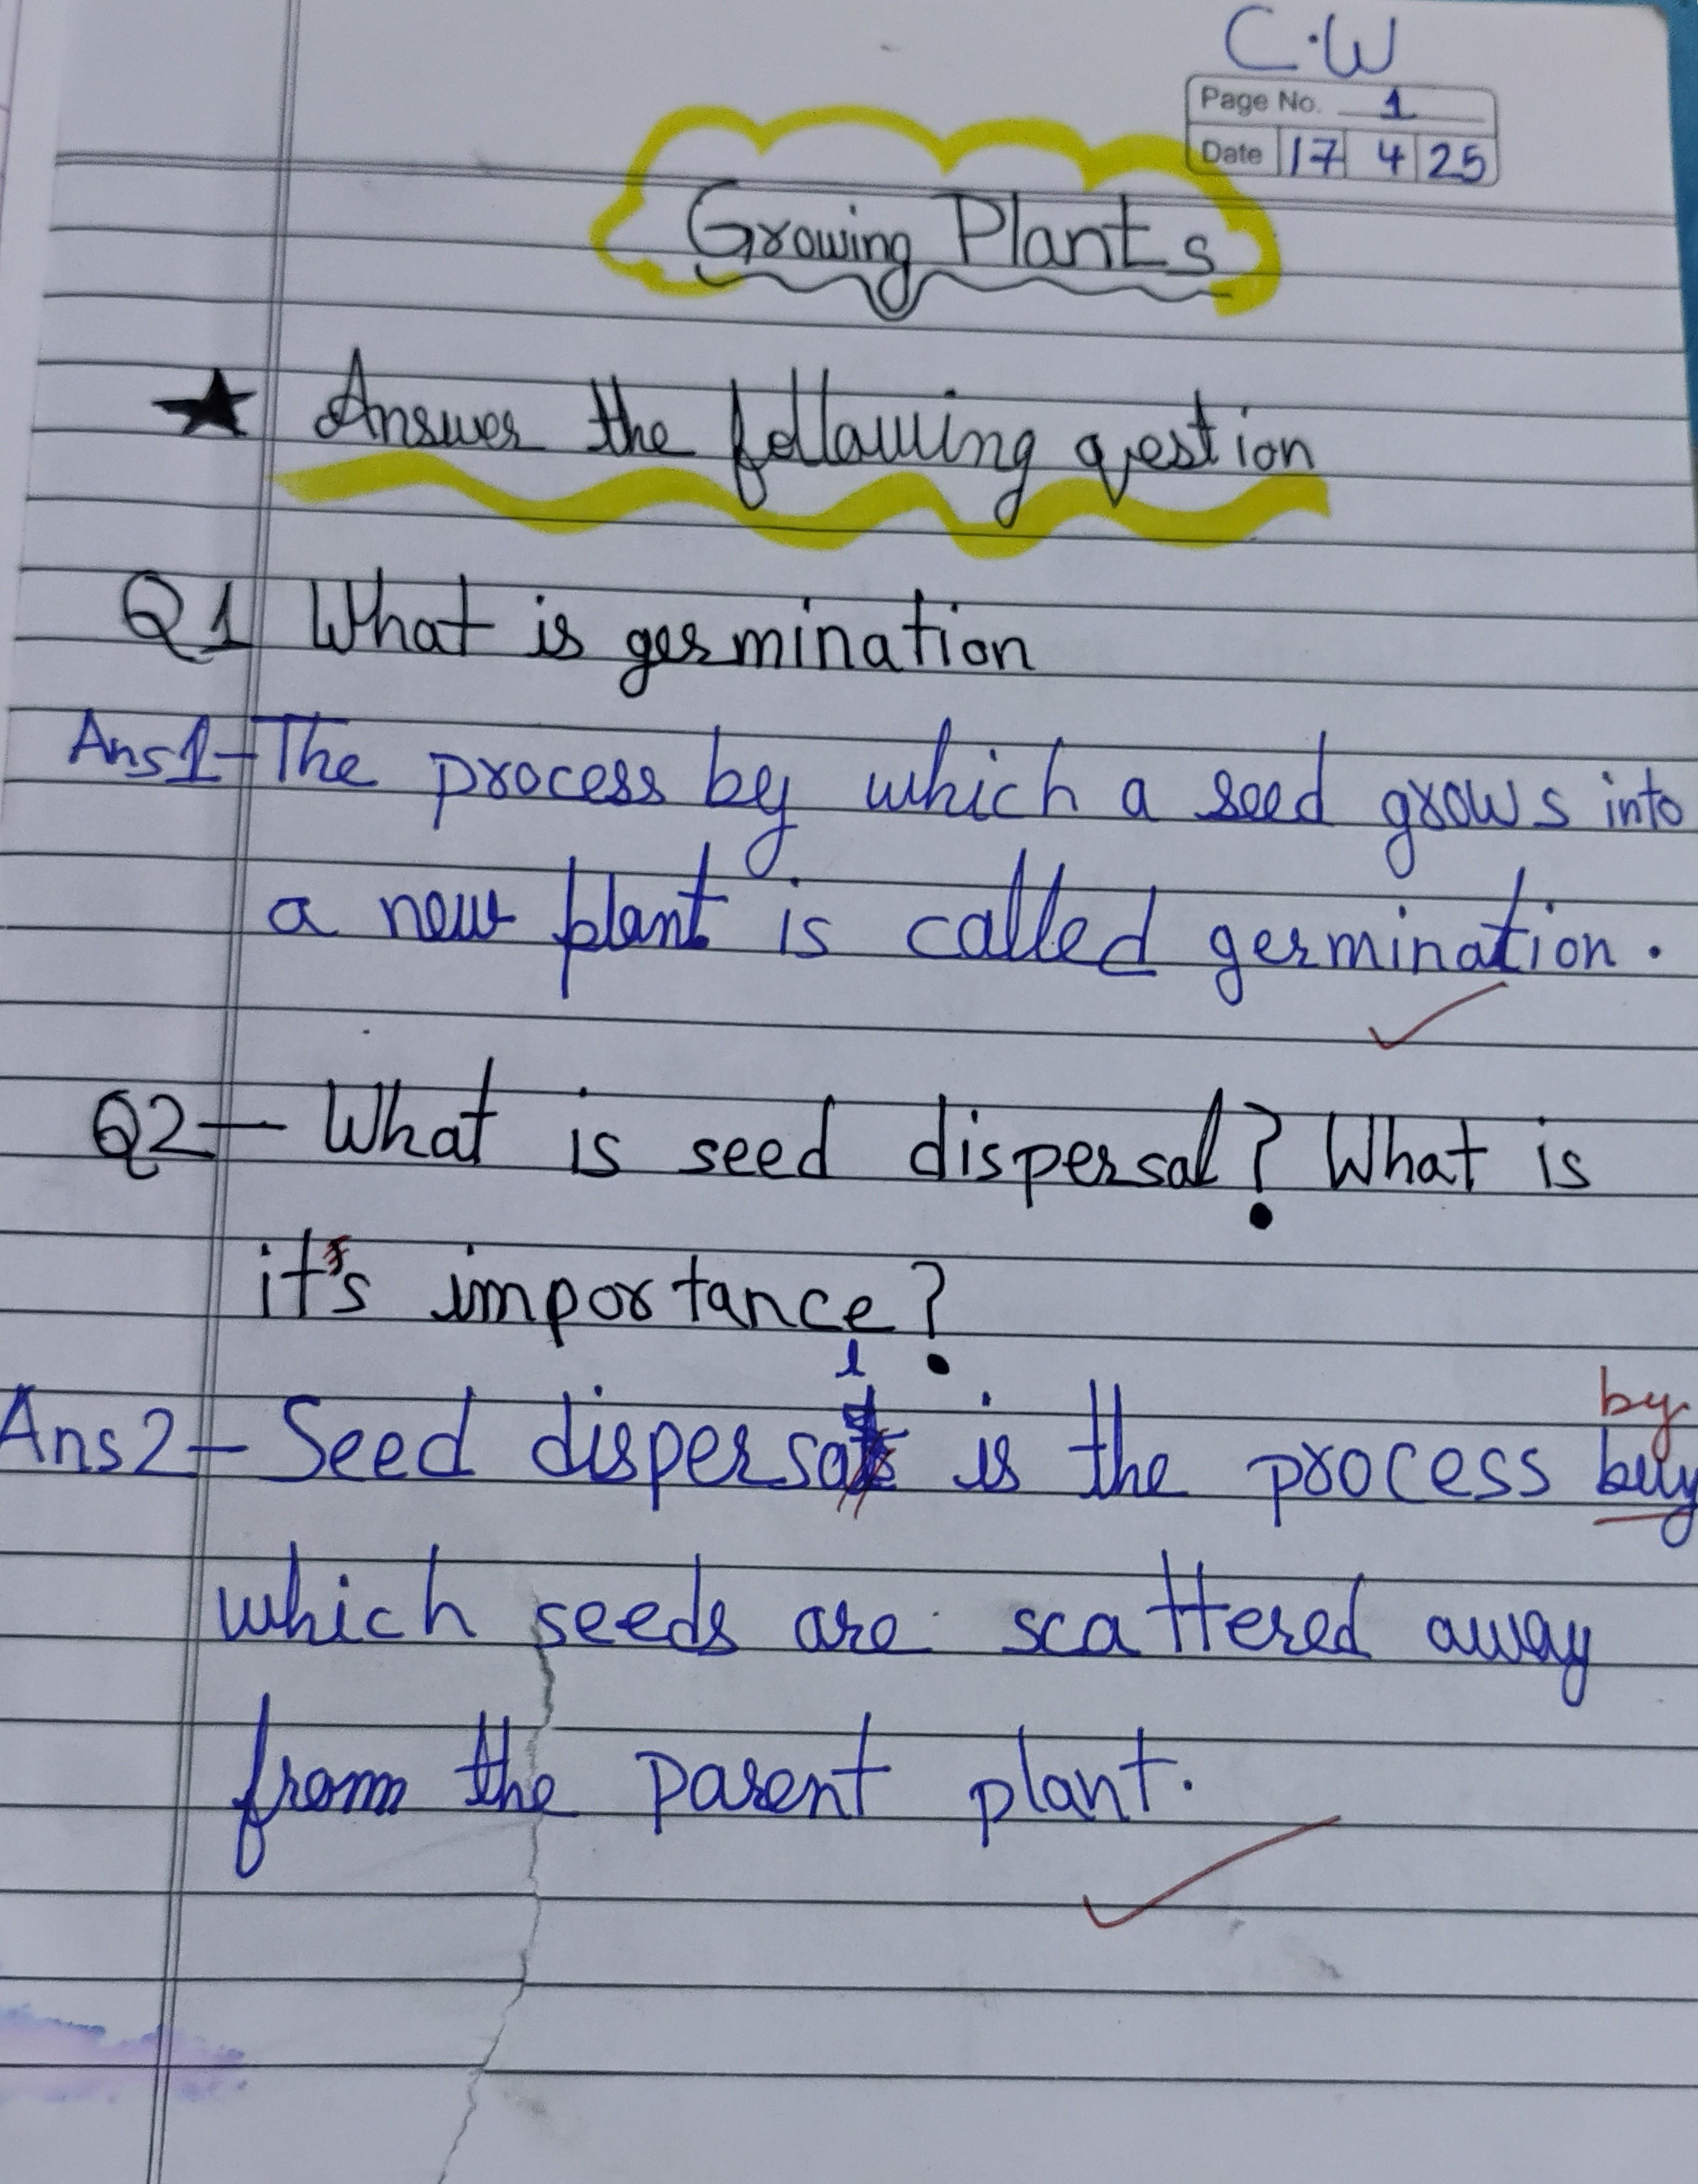 C.W
Page No. 1
Date 17 4 25
Growing Plants
★ Answer the following qestion
Q1 What is germination
Ans1-The process by which a seed grows into
a new plant is called germination.
Q2- What is seed dispersal? What is
it's importance?
by
Ans2- Seed dispersal is the process buy
which seeds are scattered away
from the parent plant.